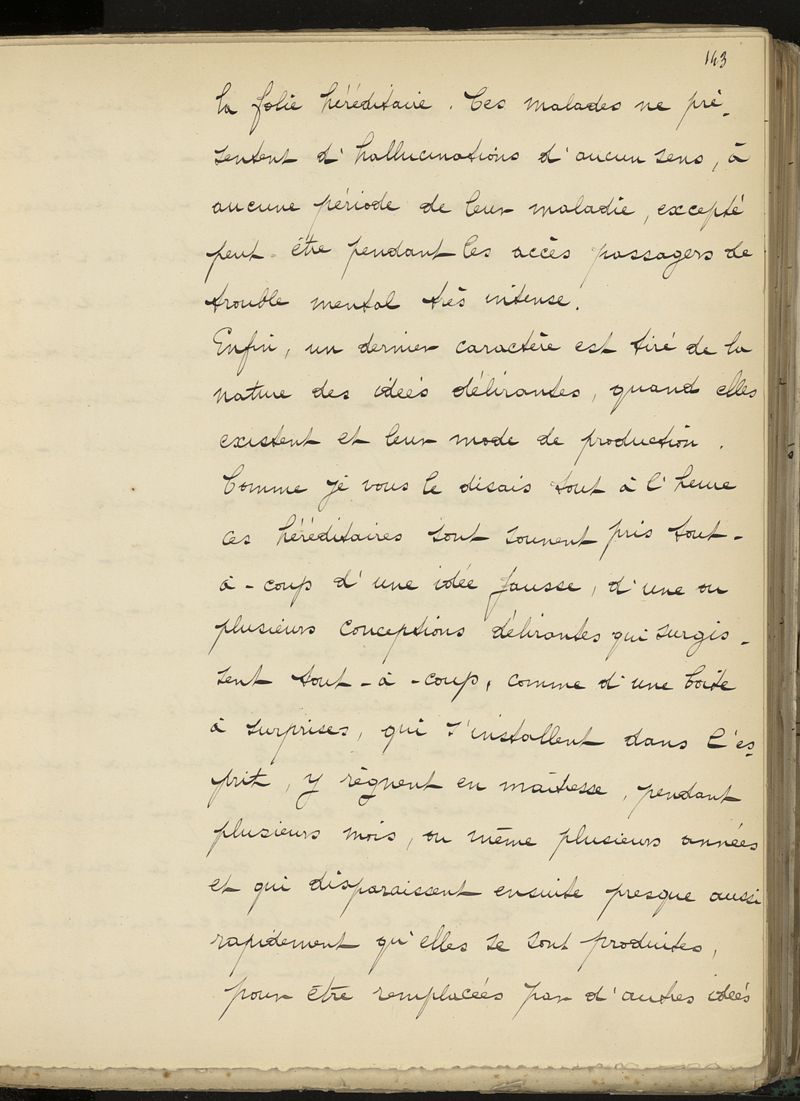 143
la folie héréditaire. Ces malades ne pré-
sentent d'hallucinations d'aucun sens, à
aucune période de leur maladie, excepté
peut-être pendant les accès passagers de
trouble mental très intense.
Enfin, un dernier caractère est tiré de la
nature des idées délirantes, quand elles
existent et leur mode de production.
Comme je vous le disais tout à l'heure
ces héréditaires sont souvent pris tout-
à-coup d'une idée fausse, d'une ou
plusieurs conceptions délirantes qui surgis-
sent tout-à-coup, comme d'une boîte
à surprises, qui s'installent dans l'es-
prit, y règnent en maîtresse, pendant
plusieurs mois, ou même plusieurs années
et qui disparaissent ensuite presque aussi
rapidement qu'elles se sont produites,
pour être remplacées par d'autres idées